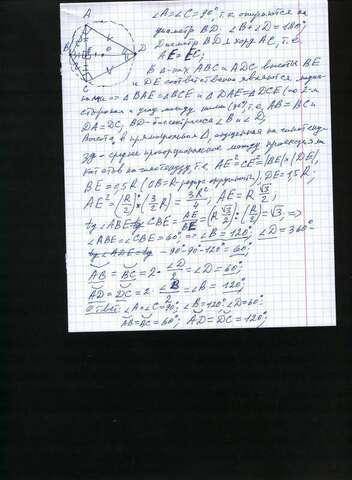 A
B
E
O
D
C
∠A=∠C=90°, т.к. опираются на
диаметр BD. ∠B+∠D=180°
Диаметр BD ⊥ хорд AC, т.е.
AE=EC;
В Δ-ках ABC и ADC высоты BE
и DE соответственно являются медиа-
нами => ΔBAE=ΔBCE и ΔDAE=ΔDCE (по 2-м
сторонам и углу между ними (90°), т.е. AB=BC и
DA=DC; BD-биссектриса ∠B и ∠D;
Высота в прямоугольн Δ, опущенная на гипотенузу
- среднее пропорциональное между проекциями
катетов на гипотенузу, т.е. AE²=CE²=|BE|×|DE|,
BE=0,5R (OB=R-радиус окружности), DE=1,5R;
AE²=(R/2)×(3/2 R)=3R²/4; AE=R √3/2;
tg∠ABE=tg∠CBE=AE/BE=(R√3/2):(R/2)=√3 =>
∠ABE=∠CBE=60° => ∠B=120°, ∠D=360°-
-90°-90°-120°=60°;
AB=BC=2·∠D/2=∠D=60°;
AD=DC=2·∠B/2=∠B=120;
Ответ: ∠A=∠C=90°, ∠B=120°, ∠D=60°.
AB=BC=60°; AD=DC=120°;